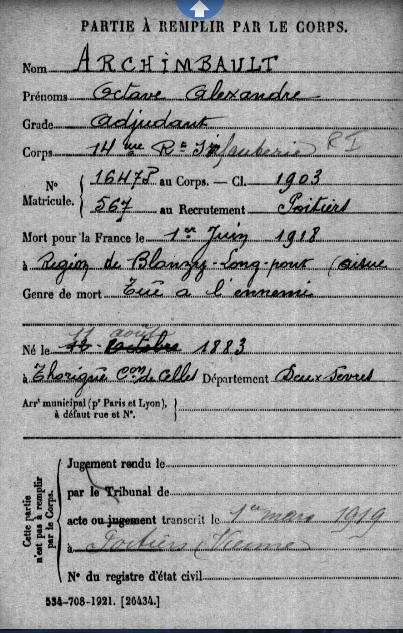 PARTIE À REMPLIR PAR LE CORPS.
Nom ARCHIMBAULT
Prénoms Octave Alexandre
Grade adjudant
Corps 14me Rt Infanterie RI
N° Matricule. { 16478 au Corps. — Cl. 1903
567 au Recrutement Poitiers
Mort pour la France le 1er Juin 1918
à Région de Blanzy-Long-pont (aisne
Genre de mort Tué a l'ennemi
11 août
Né le octobre 1883
à Thorigné Con de Celles Département Deux-Sevres
Arrt municipal (pr Paris et Lyon), à défaut rue et N°. }
Cette partie n'est pas à remplir par le Corps. { Jugement rendu le
par le Tribunal de
acte ou jugement transcrit le 1er mars 1919
à Poitiers (Vienne
N° du registre d'état civil
534-708-1921. [26434.]